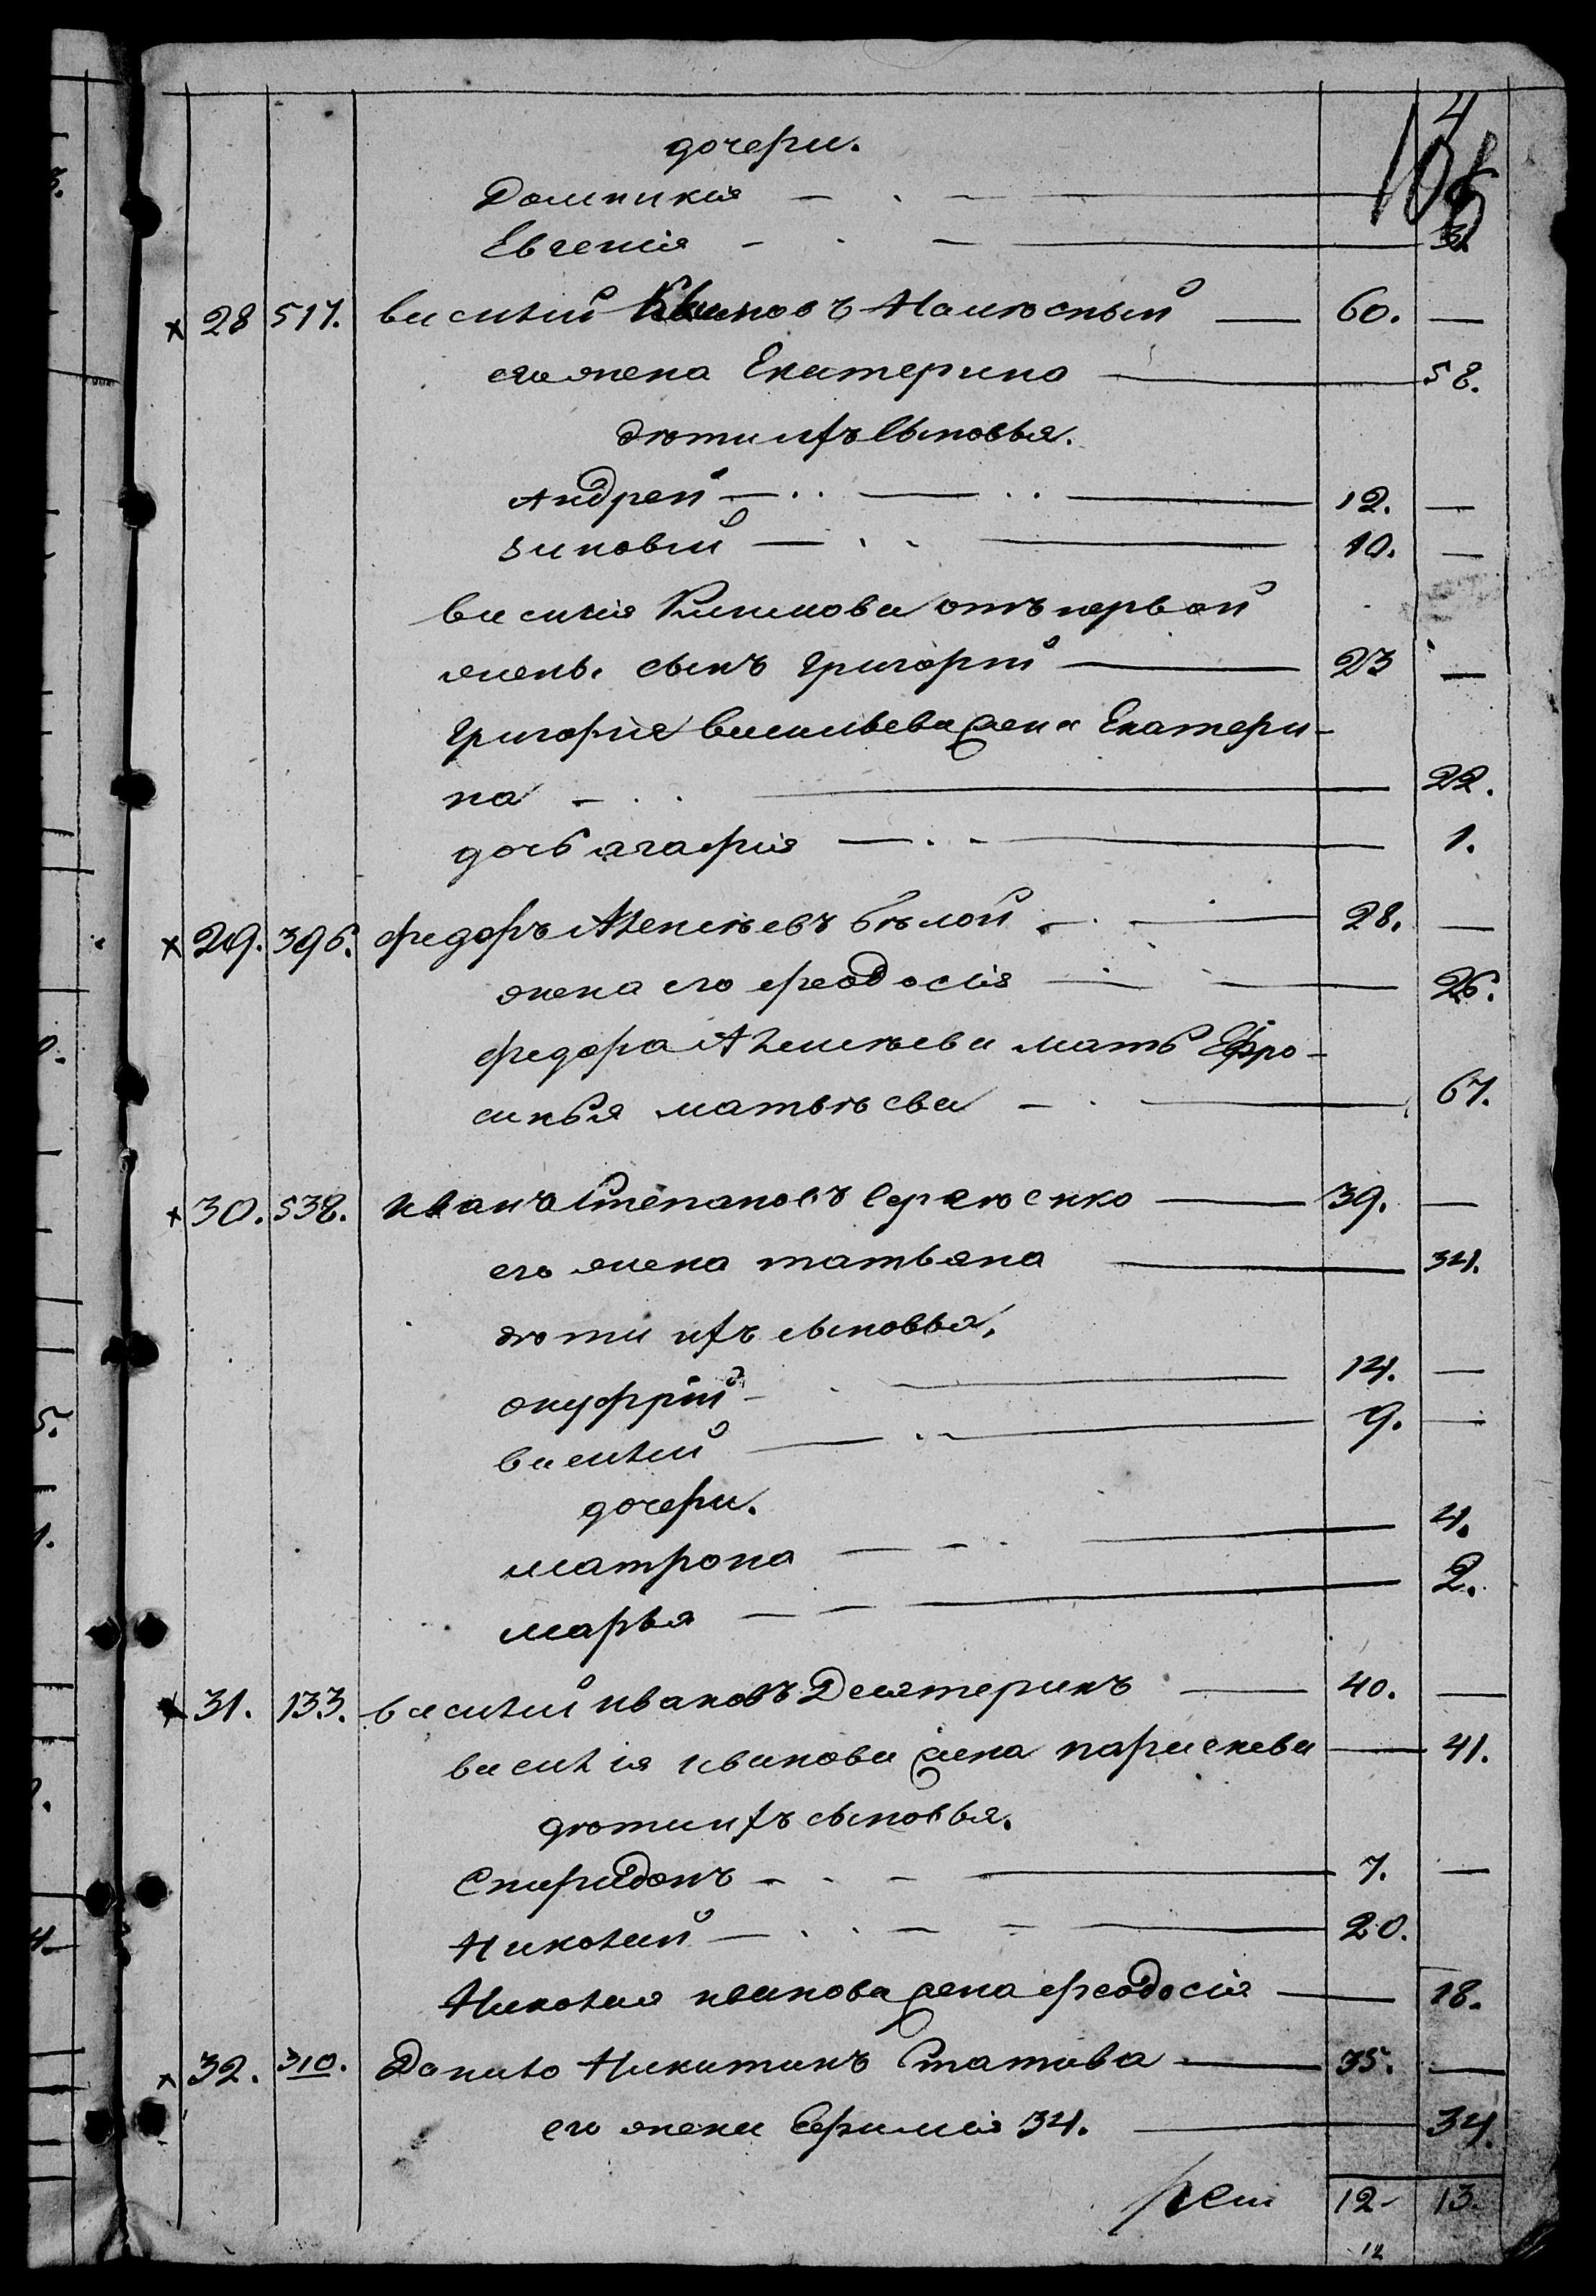 4
дочери.
Домникія — . — —
Евгенія — . — — 3.
х 28 517. Василій Климовъ Намѣсный — 60. —
его жена Екатерина — 58.
дѣти ихъ сыновья.
Андрей — . . — . . — 12. —
Зиновій — . . — 10. —
Василія Климова отъ первой
жены. сынъ Григорій — 23 —
Григорія Васильева жена Екатери-
на — . . — 22.
дочь Агафія — . - — 1.
х 29. 396. Федоръ Алексѣевъ Бѣлой — . — 28. —
жена его Феодосія — — 26.
Федора Алексѣева мать Ефро-
синья Матвѣева — . — 67.
х 30. 538. Иванъ Степановъ Сердюенко — 39. —
его жена Татьяна — 34.
дѣти ихъ сыновья.
Онуфрій — . — 14. —
Василій — . - — 9. —
дочери.
Матрона — - . — 4.
Марья — — — 2.
х 31. 133. Василій Ивановъ Десятерикъ — 40. —
Василія Иванова жена Параскева — 41.
дѣти ихъ сыновья.
Спиридонъ - . - — 7. —
Николай — . . - - — 20.
Николая Иванова жена Феодосія — 18.
х 32. 310. Данило Никитинъ Статива — 35. —
его жена Ефимія 34. — 34.
12 - 13.
12